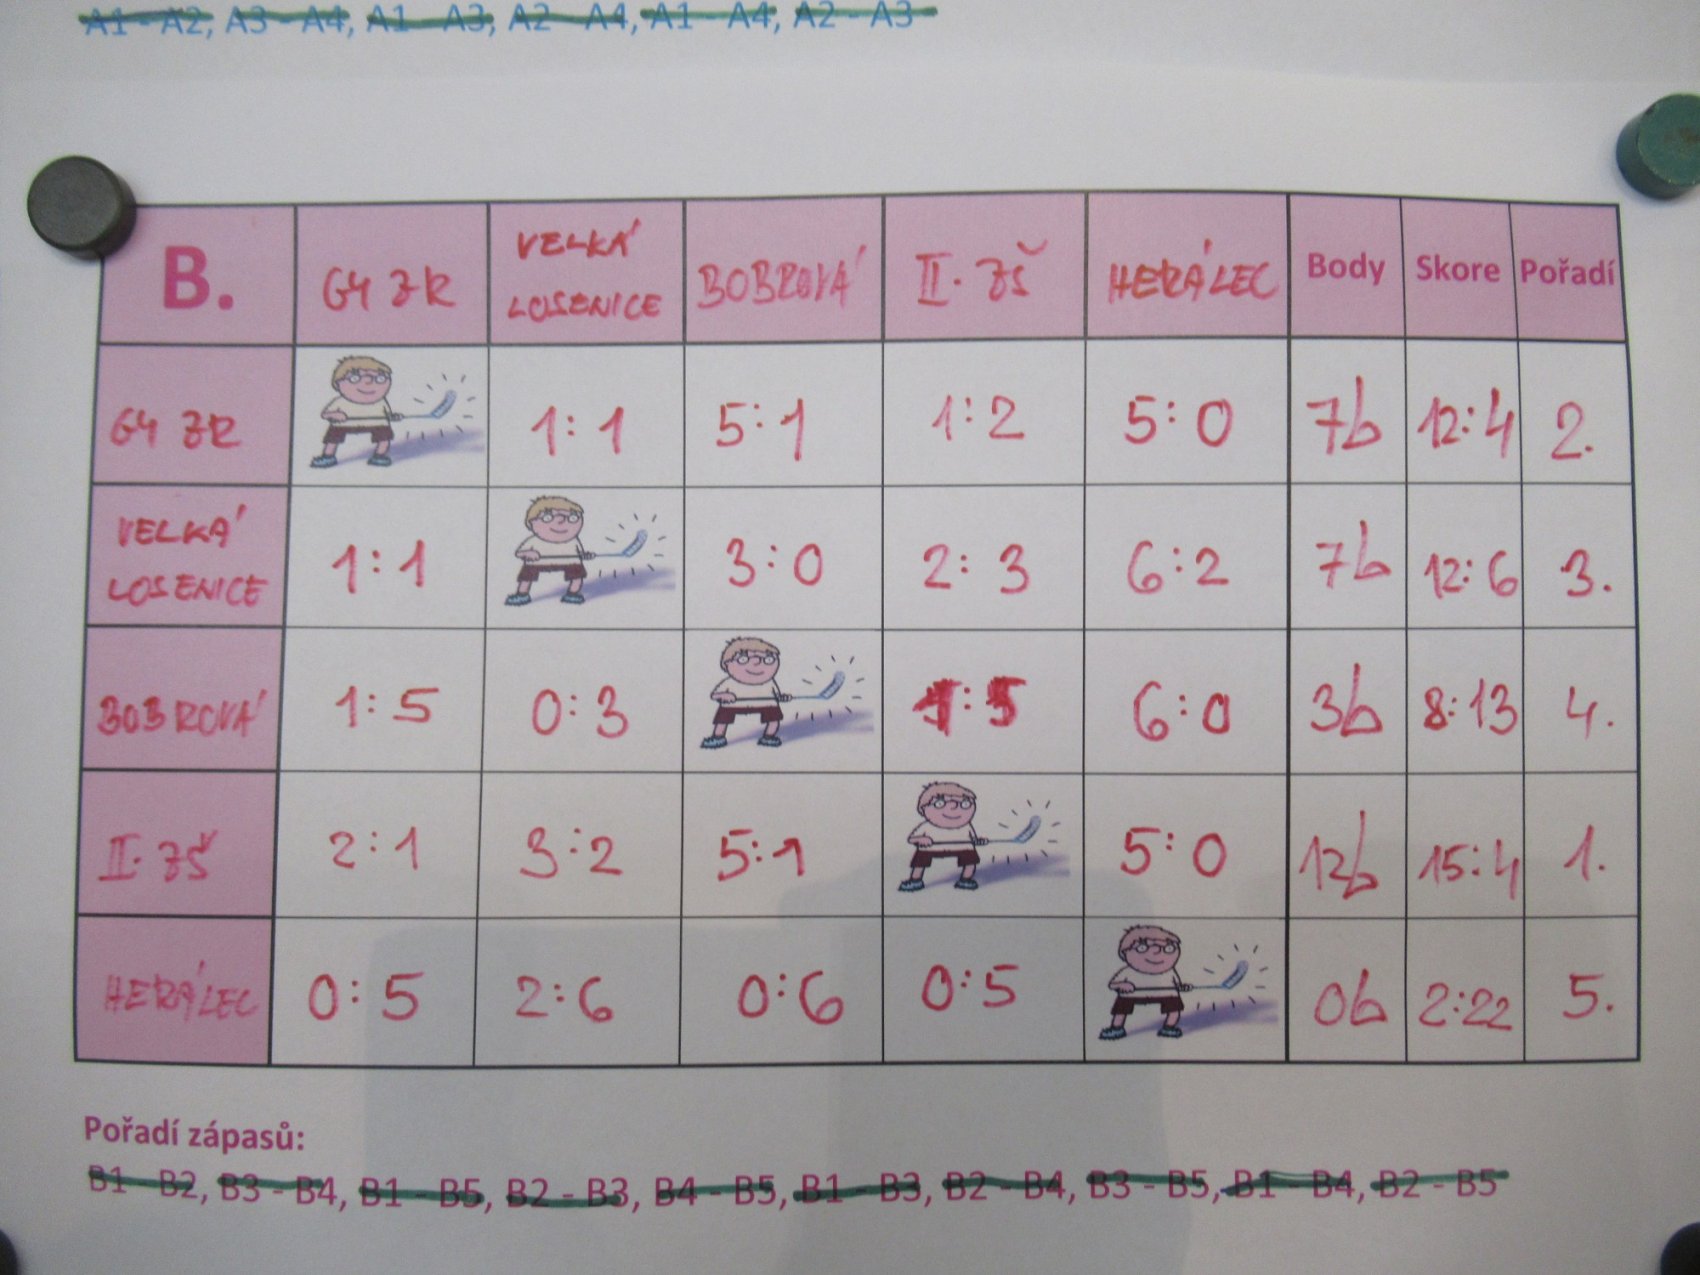 A1 - A2, A3 - A4, A1 - A3, A2 - A4, A1 - A4, A2 - A3
B. GY ZR VELKÁ LOSENICE BOBROVÁ II. ZŠ HERÁLEC Body Skore Pořadí
GY ZR 1:1 5:1 1:2 5:0 7b 12:4 2.
VELKÁ LOSENICE 1:1 3:0 2:3 6:2 7b 12:6 3.
BOBROVÁ 1:5 0:3 1:5 6:0 3b 8:13 4.
II. ZŠ 2:1 3:2 5:1 5:0 12b 15:4 1.
HERÁLEC 0:5 2:6 0:6 0:5 0b 2:22 5.
Pořadí zápasů:
B1 - B2, B3 - B4, B1 - B5, B2 - B3, B4 - B5, B1 - B3, B2 - B4, B3 - B5, B1 - B4, B2 - B5